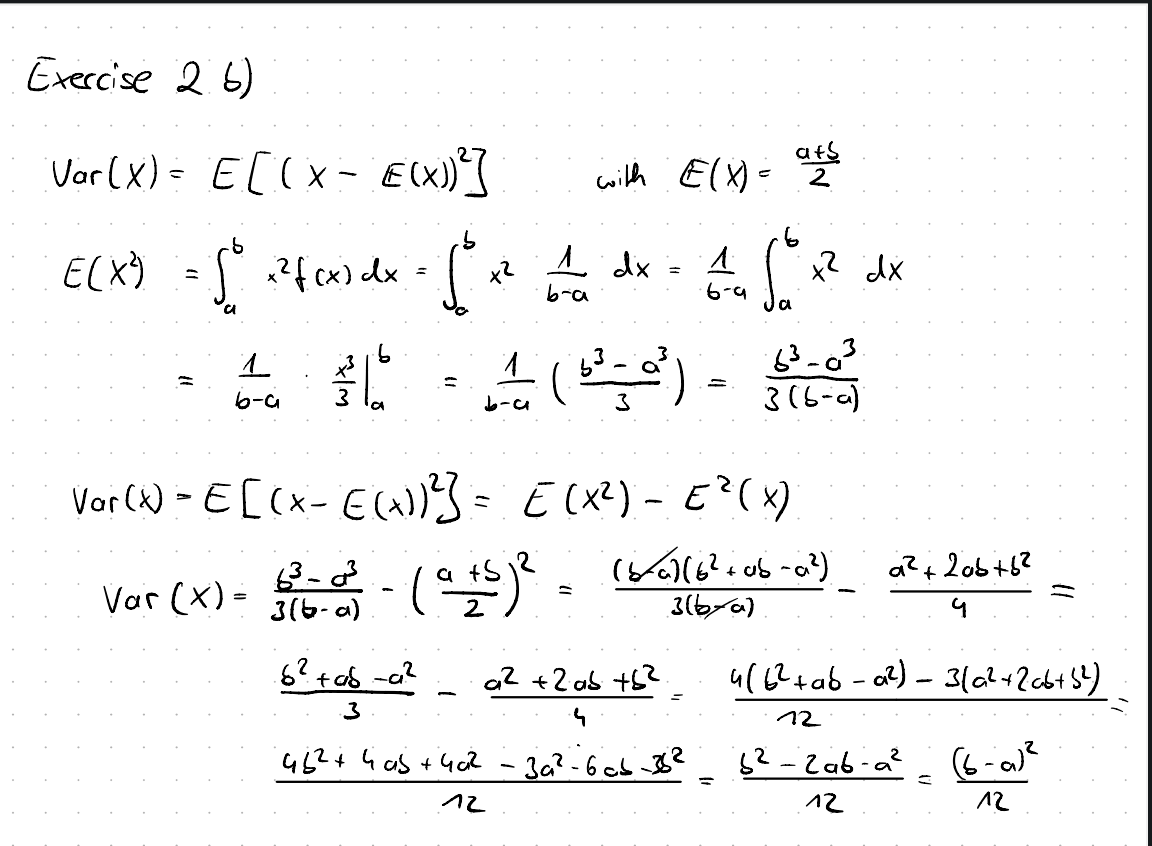 Exercise 2 b)
Var(X) = E[(X - E(X))²] with E(X) = (a+b)/2
E(X²) = ∫_a^b x² f(x) dx = ∫_a^b x² 1/(b-a) dx = 1/(b-a) ∫_a^b x² dx
= 1/(b-a) · x³/3 |_a^b = 1/(b-a) ((b³ - a³)/3) = (b³ - a³)/(3(b-a))
Var(X) = E[(X - E(X))²] = E(X²) - E²(X)
Var(X) = (b³ - a³)/(3(b-a)) - ((a+b)/2)² = ((b-a)(b² + ab - a²))/(3(b-a)) - (a² + 2ab + b²)/4 =
(b² + ab - a²)/3 - (a² + 2ab + b²)/4 = (4(b² + ab - a²) - 3(a² + 2ab + b²))/12 =
(4b² + 4ab + 4a² - 3a² - 6ab - 3b²)/12 = (b² - 2ab - a²)/12 = (b-a)²/12